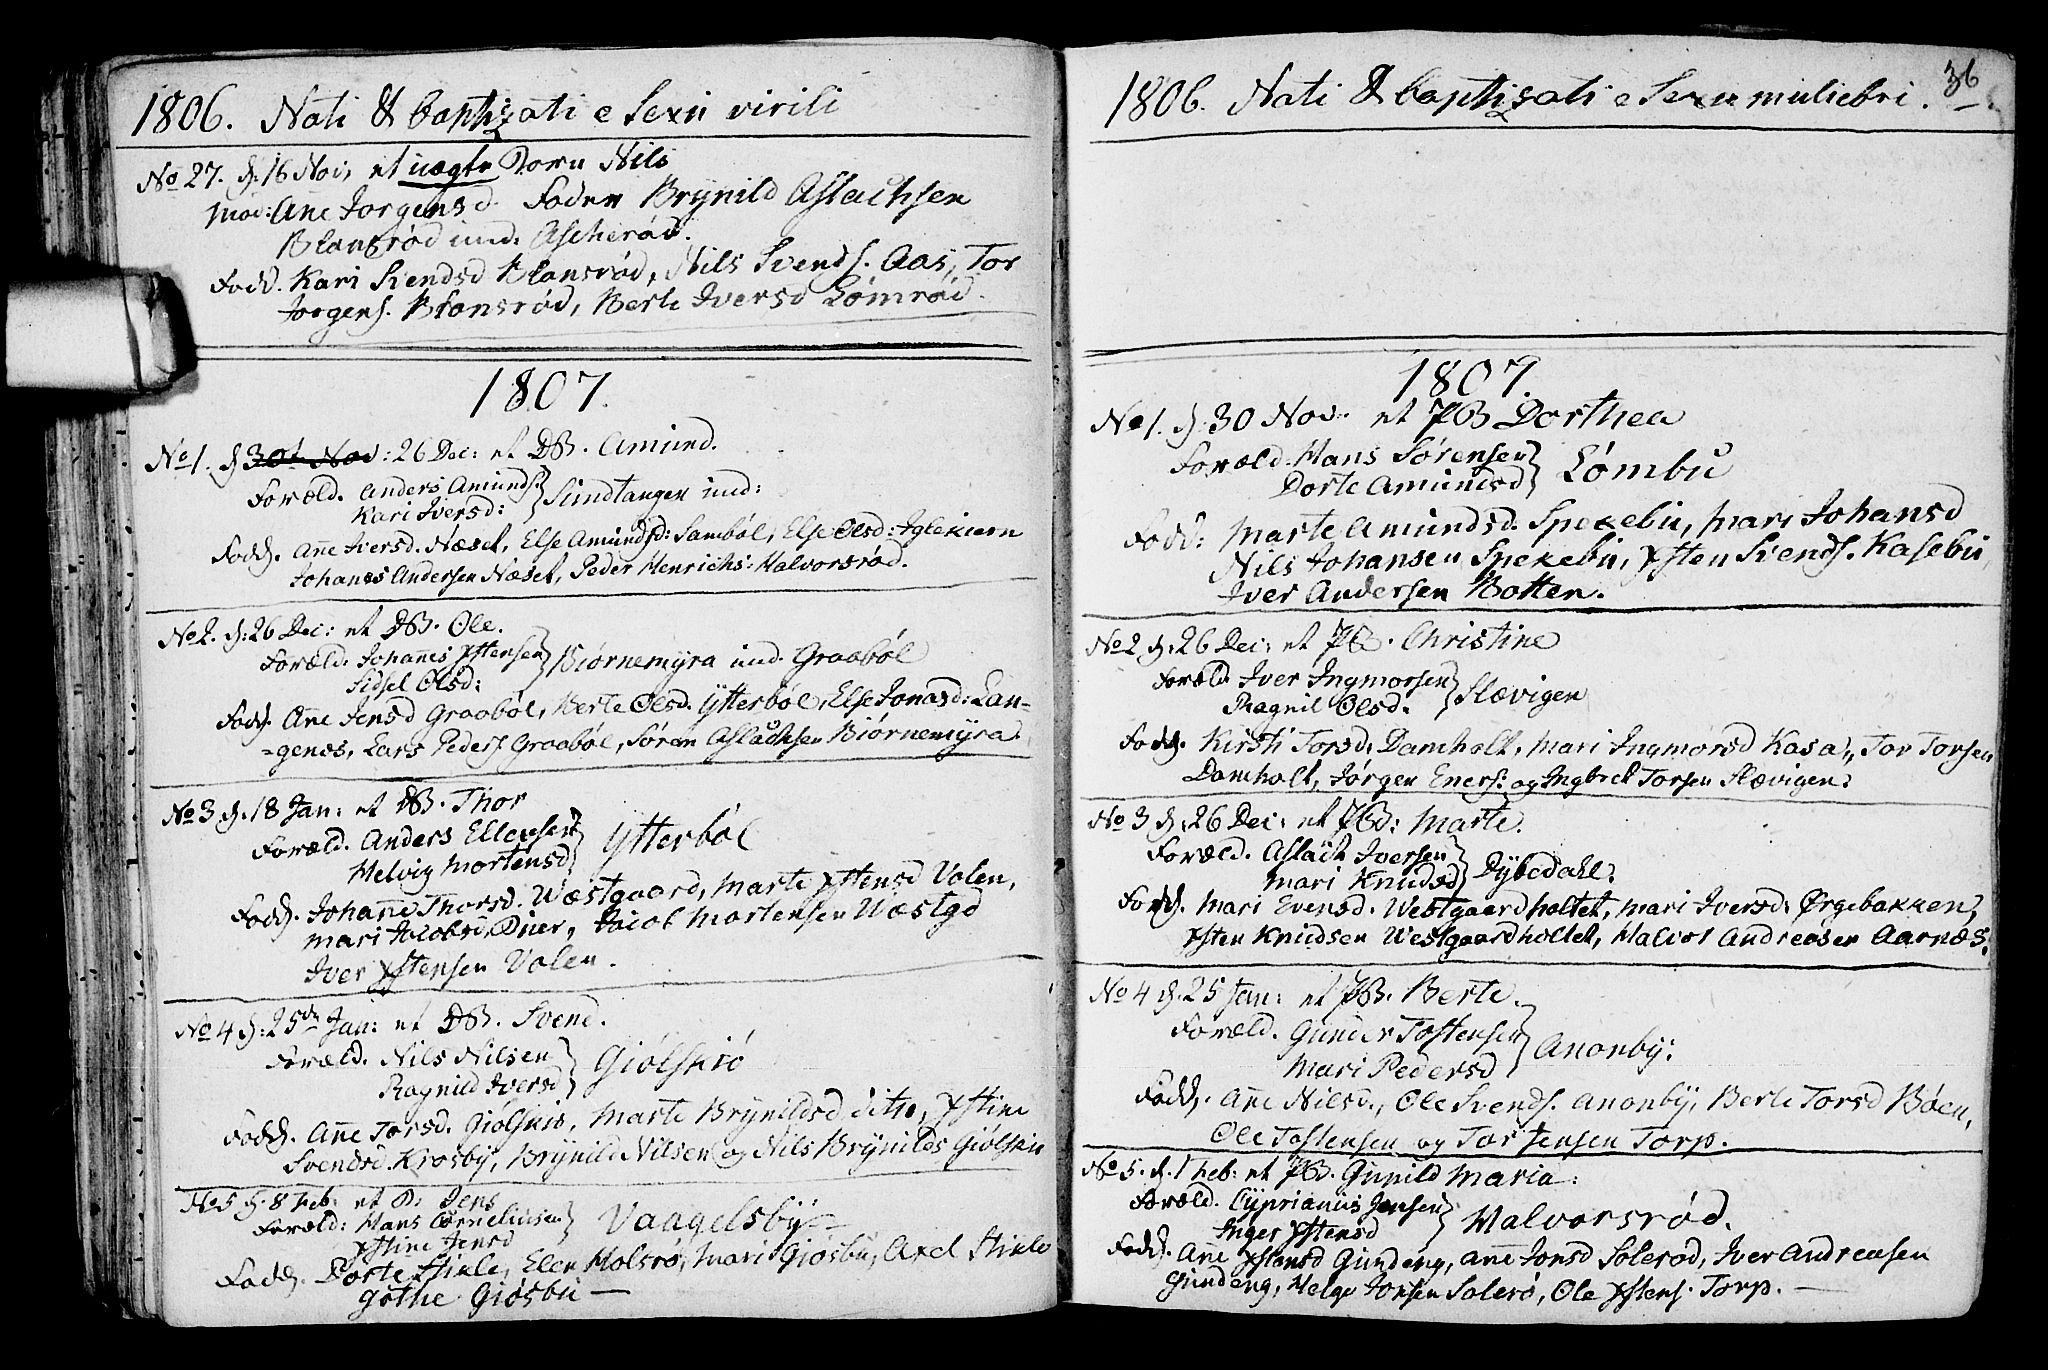 1806. Nati & baptizati e Sexu virili
No 27. d. 16 Nov, et uægte Barn Nils
Mod: Ane Jorgensd. Fader Brÿnild Aslachsen
Blansrød und. Ascherød.
Fadd. Kari Svendsd Blansrød, Nils Svends. Aas, Tor
Jorgens. Blansrød, Berte Iversd Lømrød.
1807.
No 1. d 30t Nov: 26 Dec: et DB. Amund.
Foræld. Anders Amunds. Sundtangen und:
Kari Iversd:
Fadd. Ane Iversd. Næset, Else Amundsd: Sambøl, Else Olsd: Iglekiern
Johanes Andersen Næset, Peder Henrichs: Halvorsrød.
No 2. d: 26 Dec: et DB. Ole.
Foræld: Johannes Xstensen Biørnemÿra und. Graabøl
Sidsel Olsd:
Fadd. Ane Jensd Graabøl, Berte Olsd. Ytterbøl, Else Jonasd: Lan-
-genes, Lars Peders Graabøl, Søren Aslachsen Biørnemÿra.
No 3 d. 18 Jan: et DB. Thor
Foræld. Anders Ellensen Ytterbøl
Helvig Mortensd
Fadd. Johanne Thorsd. Wæstgaard, Marte Xstensd Volen,
Mari Jacobsd, Jacob Mortensen Wæstgd
Iver Xstensen Volen.
No 4 d: 25de Jan: et DB. Svend.
Foræld. Nils Nilsen Giølsiø
Ragnild Iversd
Fadd. Ane Torsd. Giølsiø, Marte Brÿnildsd ditto, Xstine
Svendsd Krosbÿ, Brÿnild Nilsen og Nils Brÿnilds Giølsiø
No 5 d. 8 Feb: et D: Jens
Foræld: Hans Cornelinsen Vaagelsbÿ
Xstine Jensd
Fadd. Dorte Hinle, Elen Holsrø, Mari Giøsbü, Axel Hinle
Gothe Giøsbü —
1806. Nati & baptizati e Sexu muliebri. 36
1807.
No 1. d. 30 Nov. et PB Dorthea
Foræld. Hans Sørensen Lømbu
Dorte Amundsd
Fadd: Marte Amundsd. Spekebu, Mari Johansd
Nils Johansen Spekebu, Xsten Svends. Kasebu,
Iver Andersen Botten.
No 2 d. 26 Dec: et PB. Christine
Foræld. Iver Ingmorsen Slævigen
Ragnil Olsd.
Fadd. Kirsti Torsd, Damholt, Mari Ingmorsd Kasa, Tor Torsen
Damholt, Jørgen Eners. og Ingbret Torsen Slævigen.
No 3 d. 26 Dec: et PB: Marte.
Foræld. Aslach Iversen Dÿbedahl.
Mari Knudsd
Fadd. Mari Evensd. Westgaardholtet, Mari Iversd: Ørgebakken,
Xsten Knudsen Westgaardholtet, Halvor Andreasen Aarnæs.
No 4 d. 25 Jan: et PB. Berte.
Foræld. Gunder Tostensen Anonbÿ:
Mari Pedersd
Fadd. Ane Nilsd., Ole Svends. Anonbÿ, Berte Torsd Bøen,
Ole Tostensen og Tor Jensen Torp.
No 5. d. 1 Feb: et PB. Gunild Maria:
Foræld. Cyprianus Jensen Halvorsrød.
Inger Xstensd
Fadd. Ane Xstensd Gundeng, Ane Jonsd Solerød, Iver Andreasen
Gundeng, Helge Jonsen Solerø, Ole Xstens. Torp. —